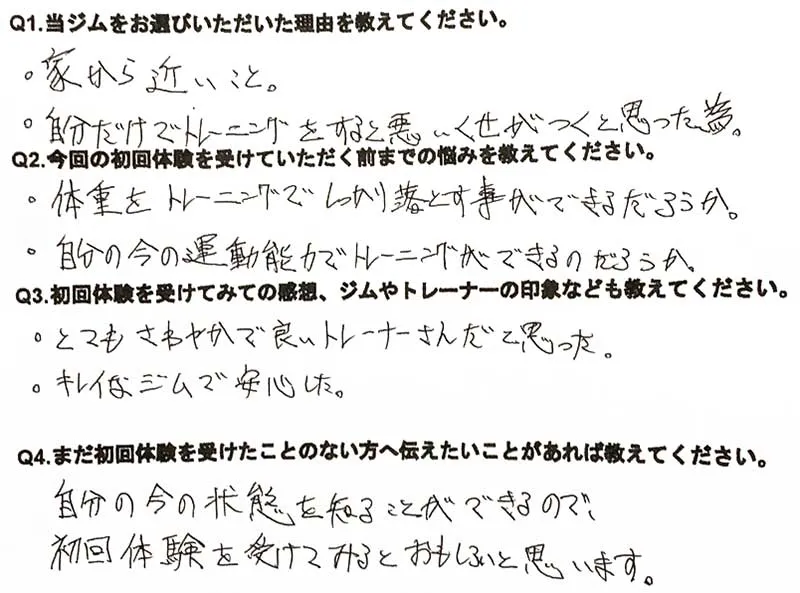 Q1.当ジムをお選びいただいた理由を教えてください。
。家から近いこと。
。自分だけでトレーニングをすると悪いくせがつくと思った為。
Q2.今回の初回体験を受けていただく前までの悩みを教えてください。
。体重をトレーニングでしっかり落とす事ができるだろうか。
。自分の今の運動能力でトレーニングができるのだろうか。
Q3.初回体験を受けてみての感想、ジムやトレーナーの印象なども教えてください。
。とてもさわやかで良いトレーナーさんだと思った。
。キレイなジムで安心した。
Q4.まだ初回体験を受けたことのない方へ伝えたいことがあれば教えてください。
自分の今の状態を知ることができるので、
初回体験を受けてみるとおもしろいと思います。